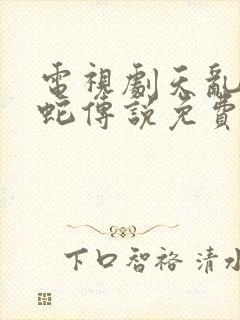 電視劇天亂
蛇傳說免費
下口智裕 清水